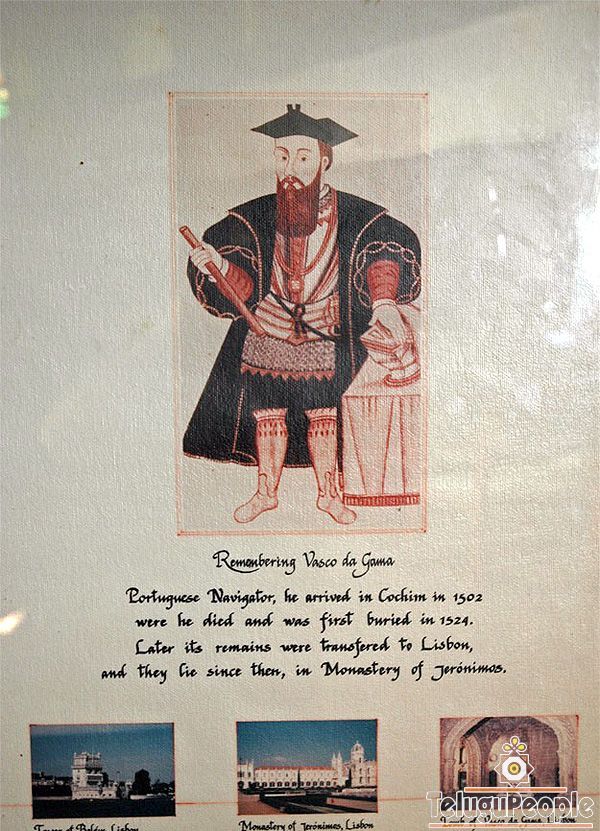 Remembering Vasco da Gama
Portuguese Navigator, he arrived in Cochim in 1502
were he died and was first buried in 1524.
Later its remains were transfered to Lisbon,
and they lie since then, in Monastery of Jerónimos.
Tower of Belém, Lisbon
Monastery of Jerónimos, Lisbon
Tomb of Vasco da Gama, Lisbon
TeluguPeople